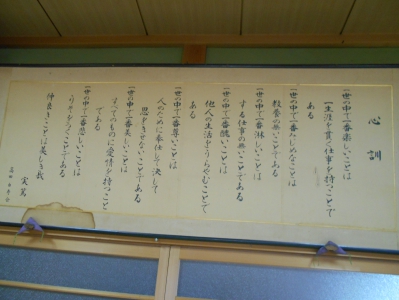 心訓
一世の中で一番楽しいことは
一生涯を貫く仕事を持つことで
ある
一世の中で一番みじめなことは
教養の無いことである
一世の中で一番淋しいことは
する仕事の無いことである
一世の中で一番醜いことは
他人の生活をうらやむことで
ある
一世の中で一番尊いことは
人のために奉仕して決して
恩をきせないことである
一世の中で一番美しいことは
すべてのものに愛情を持つこと
である
一世の中で一番悲しいことは
うそをつくことである
仲良きことは美しき哉
実篤